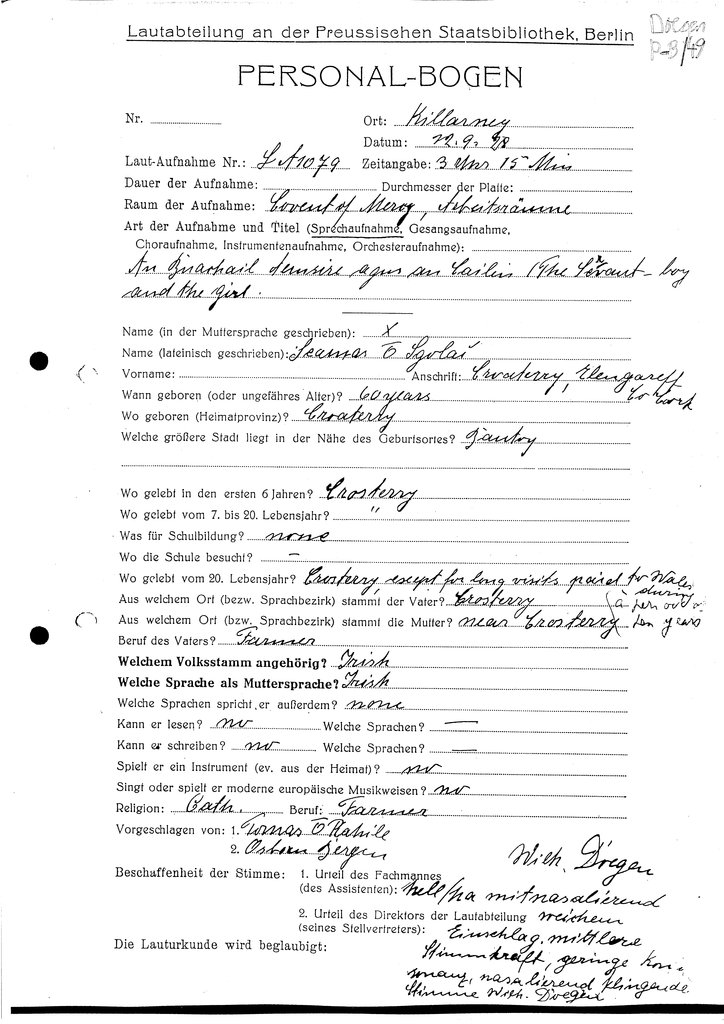 Lautabteilung an der Preussischen Staatsbibliothek, Berlin
Doegen
P-3/49
PERSONAL-BOGEN
Nr.
Ort: Killarney
Datum: 22.9.28
Laut-Aufnahme Nr.: LA1079 Zeitangabe: 3 Uhr 15 Min
Dauer der Aufnahme: Durchmesser der Platte:
Raum der Aufnahme: Covent of Mercy, Arbeitsräume
Art der Aufnahme und Titel (Sprechaufnahme, Gesangsaufnahme,
Choraufnahme, Instrumentenaufnahme, Orchesteraufnahme):
An Buachail aimsire agus an Cailin (The Servant-boy
and the girl.
Name (in der Muttersprache geschrieben): X
Name (lateinisch geschrieben): Seamas Ō
Vorname: Anschrift: Croaterry, Elengareff
Co Cork
Wann geboren (oder ungefähres Alter)? 60 years
Wo geboren (Heimatprovinz)? Croaterry
Welche größere Stadt liegt in der Nähe des Geburtsortes? Bantry
Wo gelebt in den ersten 6 Jahren? Crosterry
Wo gelebt vom 7. bis 20. Lebensjahr? "
Was für Schulbildung? none
Wo die Schule besucht? –
Wo gelebt vom 20. Lebensjahr? Crosterry, except for long visits paied to Wales
during
Aus welchem Ort (bezw. Sprachbezirk) stammt der Vater? Crosterry
a per
Aus welchem Ort (bezw. Sprachbezirk) stammt die Mutter? near Crosterry
ten years
Beruf des Vaters? Farmer
Welchem Volksstamm angehörig? Irish
Welche Sprache als Muttersprache? Irish
Welche Sprachen spricht er außerdem? none
Kann er lesen? no Welche Sprachen? —
Kann er schreiben? no Welche Sprachen? —
Spielt er ein Instrument (ev. aus der Heimat)? no
Singt oder spielt er moderne europäische Musikweisen? no
Religion: Cath. Beruf: Farmer
Vorgeschlagen von: 1. Tomas Ō
2. Osborn Bergen
Wilh. Doegen
Beschaffenheit der Stimme: 1. Urteil des Fachmannes
(des Assistenten): hell/ha mit nasalierend
2. Urteil des Direktors der Lautabteilung weichem
(seines Stellvertreters): Einschlag. mittlere
Die Lauturkunde wird beglaubigt:
Stimmkraft, geringe Kon-
sonanz, nasalierend klingende
Stimme Wilh. Doegen